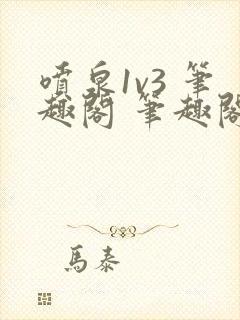 噴泉1v3 筆
趣閣 筆趣閣
馬泰